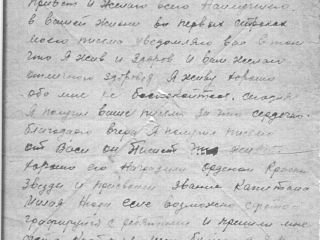 Привет и желаю всего наилучшего
в вашей жизни во первых строках
моего письма уведомляю вас в том
что я жив и здоров и вам желаю
отличного здоровья я живу хорошо
обо мне не беспокойтесь. сегодня
я получил ваше письмо за что сердечно
благодарю вчера я получил письмо
от Васи он пишет что живет
хорошо его наградили орденом Красной
звезды и присвоили звание капитана
если возможно сфото-
графируйся с ребятами и пришли мне